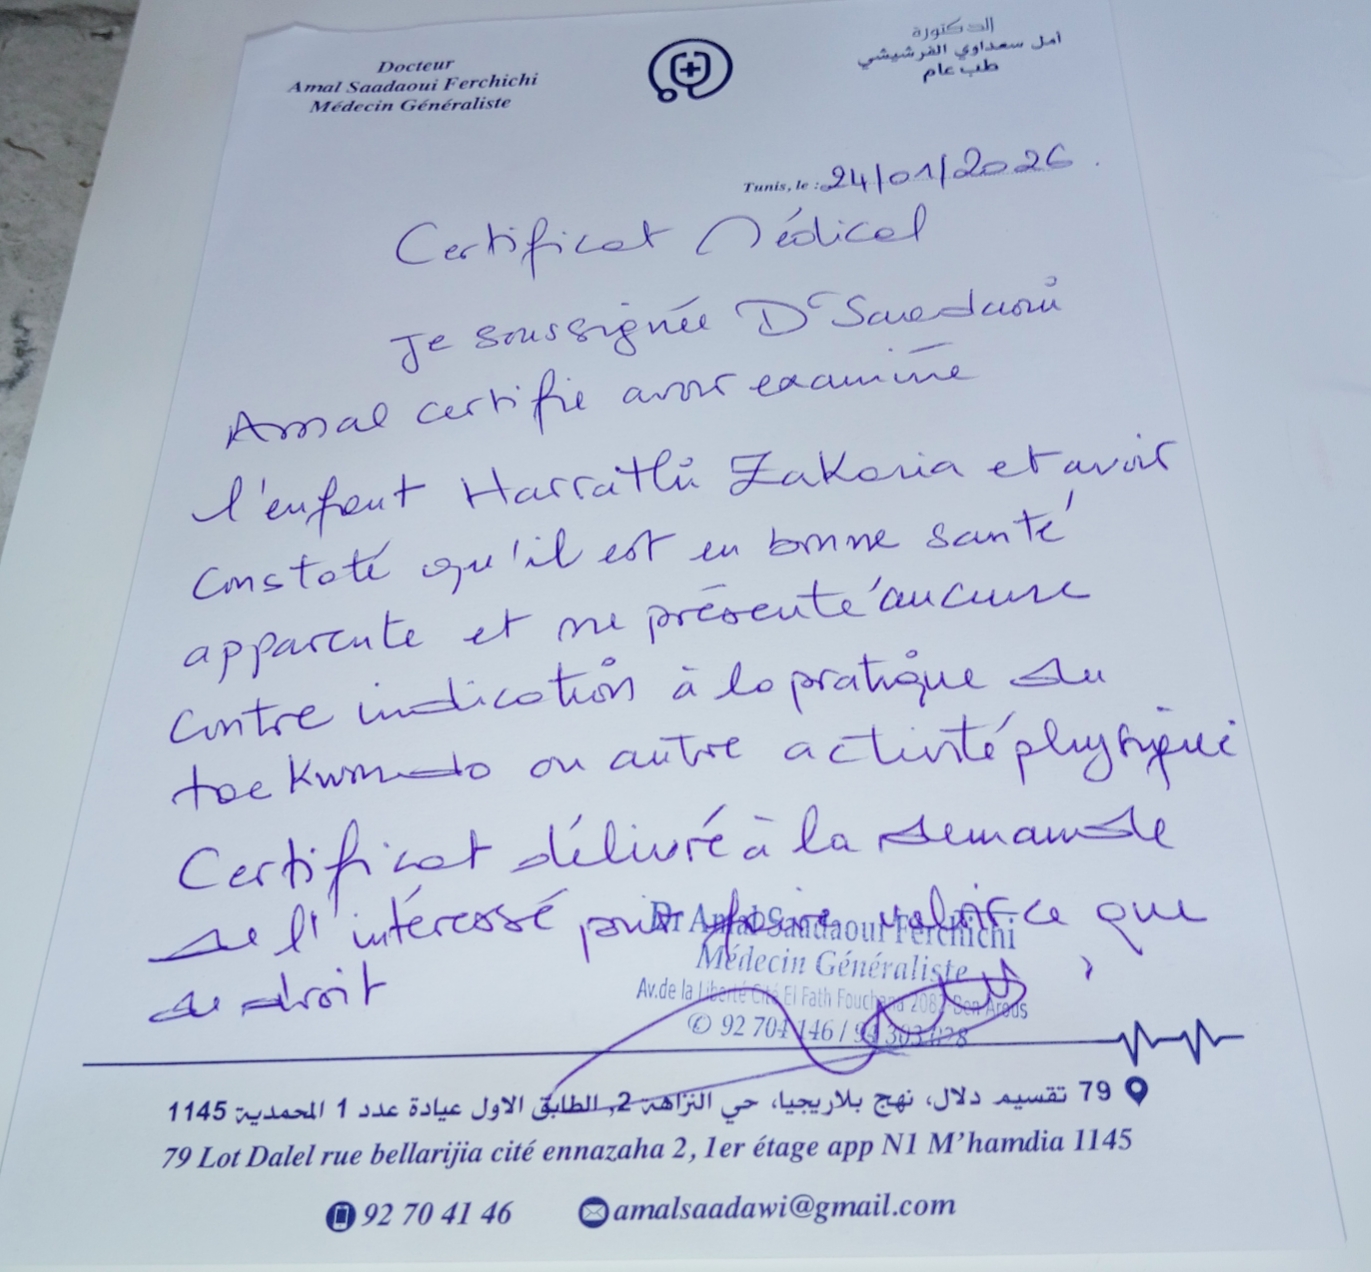 Docteur
Amal Saadaoui Ferchichi
Médecin Généraliste
الدكتورة
أمل سعداوي الفرشيشي
طب عام
Tunis, le : 24/01/2026
Certificat Médical
Je soussignée Dr Saadaoui
Amal certifie avoir examiné
l'enfant Harrathi Zakaria et avoir
constaté qu'il est en bonne santé
apparente et ne présente aucune
contre indication à la pratique du
taekwondo ou autre activité physique
Certificat délivré à la demande
de l'intéressé pour faire valoir ce que
de droit
Dr Amal Saadaoui Ferchichi
Médecin Généraliste
Av.de la Liberté Cité El Fath Fouchana 2082 Ben Arous
92 704 146 /
79 تقسيم دلال، نهج بلاريجيا، حي النزاهة 2, الطابق الاول عيادة عدد 1 المحمدية 1145
79 Lot Dalel rue bellarijia cité ennazaha 2, 1er étage app N1 M'hamdia 1145
92 70 41 46 amalsaadawi@gmail.com